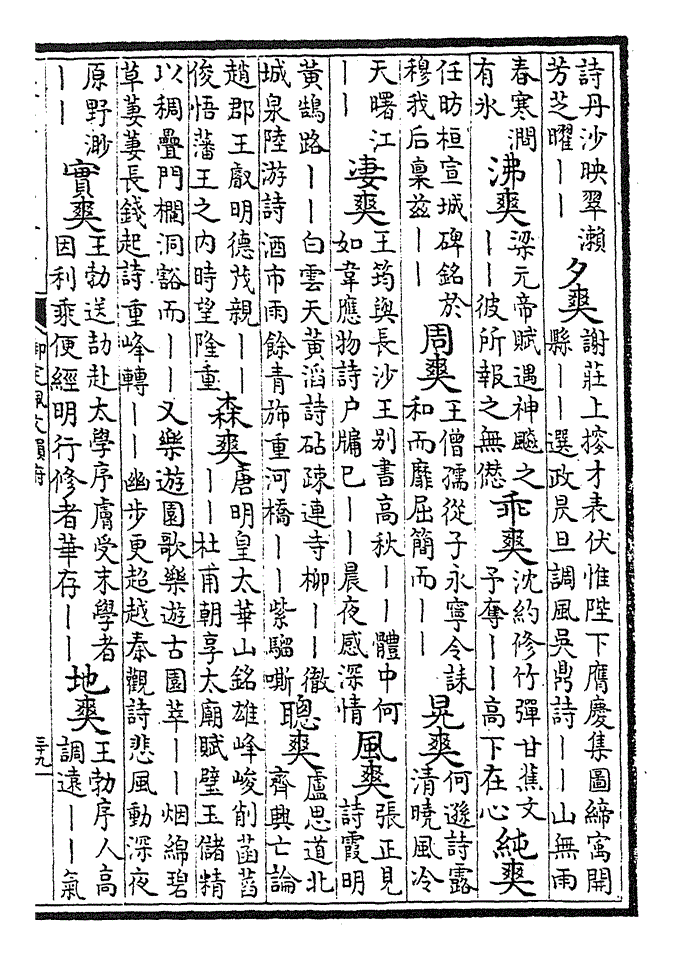 詩丹沙映翠瀨芳芝曜——夕爽謝莊上搜才表伏惟陛下膺慶集圖締寓開縣——選政昃旦調風吳鼎詩——山無雨
春寒澗有氷沸爽梁元帝賦遇神飈之——彼所報之無僽乖爽沈約修竹彈甘蕉文予奪——高下在心純爽
任昉桓宣城碑銘於穆我后稟兹——周爽王僧孺從子永寧令誄和而靡屈簡而——晃爽何遜詩露清曉風冷
天曙江——凄爽王筠與長沙王别書高秋——體中何如韋應物詩户牖已——晨夜感深情風爽張正見詩霞明
黃鵠路——白雲天黃滔詩砧疎連寺柳——徹城泉陸游詩酒市雨餘青斾重河橋——紫騮嘶聰爽盧思道北齊興亡論
趙郡王叡明德茂親——俊悟藩王之内時望隆重森爽唐明皇太華山銘雄峰峻削菡萏——杜甫朝享太廟賦璧玉儲精
以稠疊門欄洞豁而——又樂遊園歌樂遊古園萃——烟綿碧草萋萋長錢起詩重峰轉——幽步更超越秦觀詩悲風動深夜
原野渺——實爽王勃送劼赴太學序膚受末學者因利乘便經明行修者華存——地爽王勃序人高調遠——氣